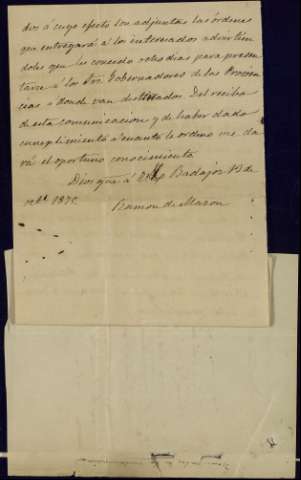 dos á cuyo efecto son adjuntas las órdenes
que entregará á los internados advirtien
doles que les concedo ocho dias para presen
tarse á los Sres Gobernadores de las Provin
cias a donde van destinados. Del recibo
de esta comunicacion y de haber dado
cumplimiento á cuanto le ordeno me da
rá el oportuno conocimiento
Dios gue á V. Badajoz 13 de
1875.
Ramon de Mazon